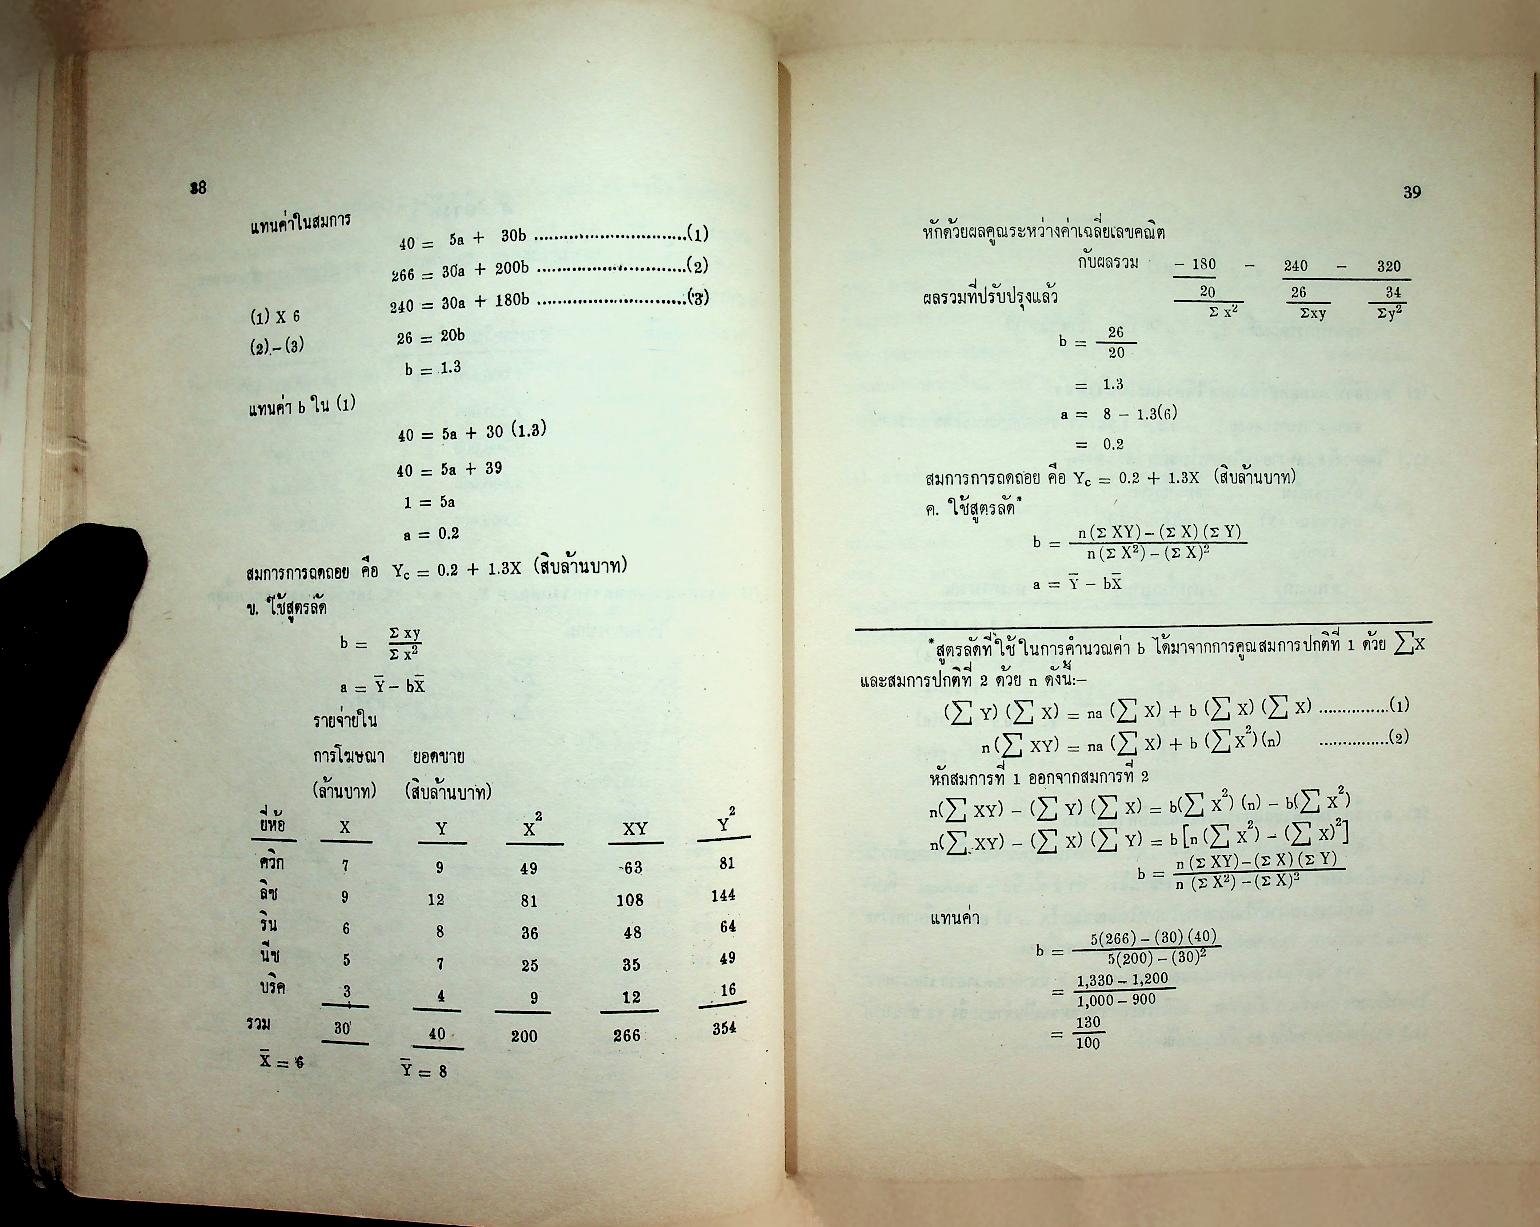 38
แทนค่าในสมการ
40 = 5a + 30b ..............................(1)
266 = 30a + 200b ..............................(2)
(1) X 6 240 = 30a + 180b ..............................(3)
(2).–(3) 26 = 20b
b = 1.3
แทนค่า b ใน (1)
40 = 5a + 30 (1.3)
40 = 5a + 39
1 = 5a
a = 0.2
สมการการถดถอย คือ Yc = 0.2 + 1.3X (สิบล้านบาท)
ข. ใช้สูตรลัด
b = Σ xy / Σ x²
a = Y̅ – bX̅
รายจ่ายใน
การโฆษณา ยอดขาย
(ล้านบาท) (สิบล้านบาท)
ยี่ห้อ X Y X² XY Y²
ควิก 7 9 49 63 81
ลิช 9 12 81 108 144
ริน 6 8 36 48 64
นีช 5 7 25 35 49
บริค 3 4 9 12 16
รวม 30 40 200 266 354
X̅ = 6 Y̅ = 8
39
หักด้วยผลคูณระหว่างค่าเฉลี่ยเลขคณิต
กับผลรวม – 180 – 240 – 320
ผลรวมที่ปรับปรุงแล้ว 20 26 34
Σ x² Σxy Σy²
b = 26 / 20
= 1.3
a = 8 – 1.3(6)
= 0.2
สมการการถดถอย คือ Yc = 0.2 + 1.3X (สิบล้านบาท)
ค. ใช้สูตรลัด*
b = n(Σ XY) – (Σ X) (Σ Y) / n(Σ X²) – (Σ X)²
a = Y̅ – bX̅
*สูตรลัดที่ใช้ในการคำนวณค่า b ได้มาจากการคูณสมการปกติที่ 1 ด้วย ∑X
และสมการปกติที่ 2 ด้วย n ดังนี้:–
(∑ Y) (∑ X) = na (∑ X) + b (∑ X) (∑ X) ...............(1)
n(∑ XY) = na (∑ X) + b (∑X²)(n) ...............(2)
หักสมการที่ 1 ออกจากสมการที่ 2
n(∑ XY) – (∑ Y) (∑ X) = b(∑ X²) (n) – b(∑ X²)
n(∑ XY) – (∑ X) (∑ Y) = b [n (∑ X²) – (∑ X)²]
b = n (Σ XY)–(Σ X) (Σ Y) / n (Σ X²) –(Σ X)²
แทนค่า
b = 5(266) – (30) (40) / 5(200) – (30)²
= 1,330 – 1,200 / 1,000 – 900
= 130 / 100